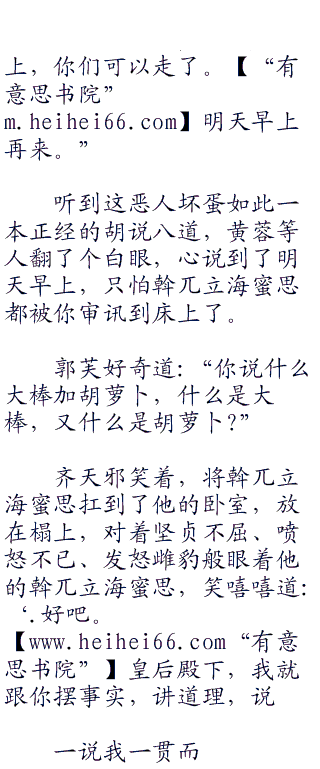 上，你们可以走了。【“有
意思书院”
m.heihei66.com】明天早上
再来。”
听到这恶人坏蛋如此一
本正经的胡说八道，黄蓉等
人翻了个白眼，心说到了明
天早上，只怕斡兀立海蜜思
都被你审讯到床上了。
郭芙好奇道：“你说什么
大棒加胡萝卜，什么是大
棒，又什么是胡萝卜？”
齐天邪笑着，将斡兀立
海蜜思扛到了他的卧室，放
在榻上，对着坚贞不屈、喷
怒不已、发怒雌豹般眼着他
的斡兀立海蜜思，笑嘻嘻道：
‘.好吧。
【www.heihei66.com“有意
思书院”】皇后殿下，我就
跟你摆事实，讲道理，说
一说我一贯而